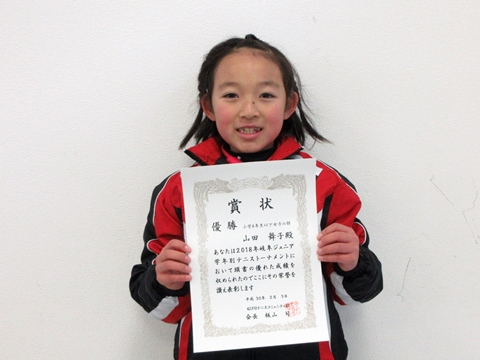 賞状
優勝 小学4年生以下女子の部
山田 舞子殿
あなたは2018年岐阜ジュニア
学年別テニストーナメントに
おいて頭書の優れた成績を
収められたのでここにその栄誉を
讃え表彰します
平成30年3月3日